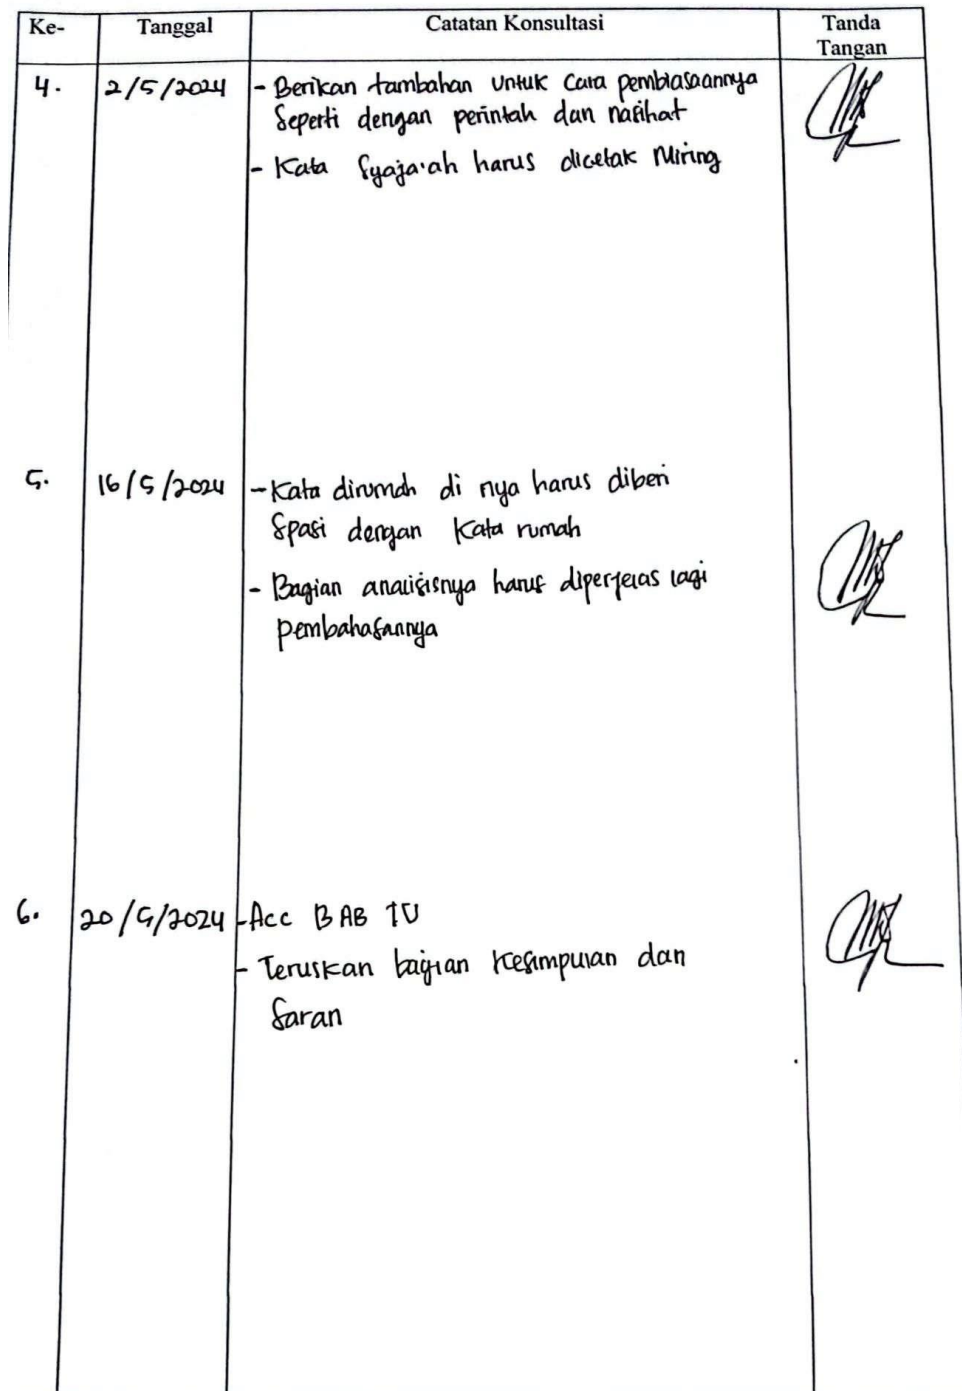 Ke- Tanggal Catatan Konsultasi Tanda
Tangan
4. 2/5/2024 - Berikan tambahan untuk cara pembiasaannya
seperti dengan perintah dan nasihat
- Kata Syaja'ah harus dicetak Miring
5. 16/5/2024 - Kata dirumah di nya harus diberi
spasi dengan kata rumah
- Bagian analisisnya harus diperjelas lagi
pembahasannya
6. 20/5/2024 - Acc BAB IV
- Teruskan bagian kesimpulan dan
saran